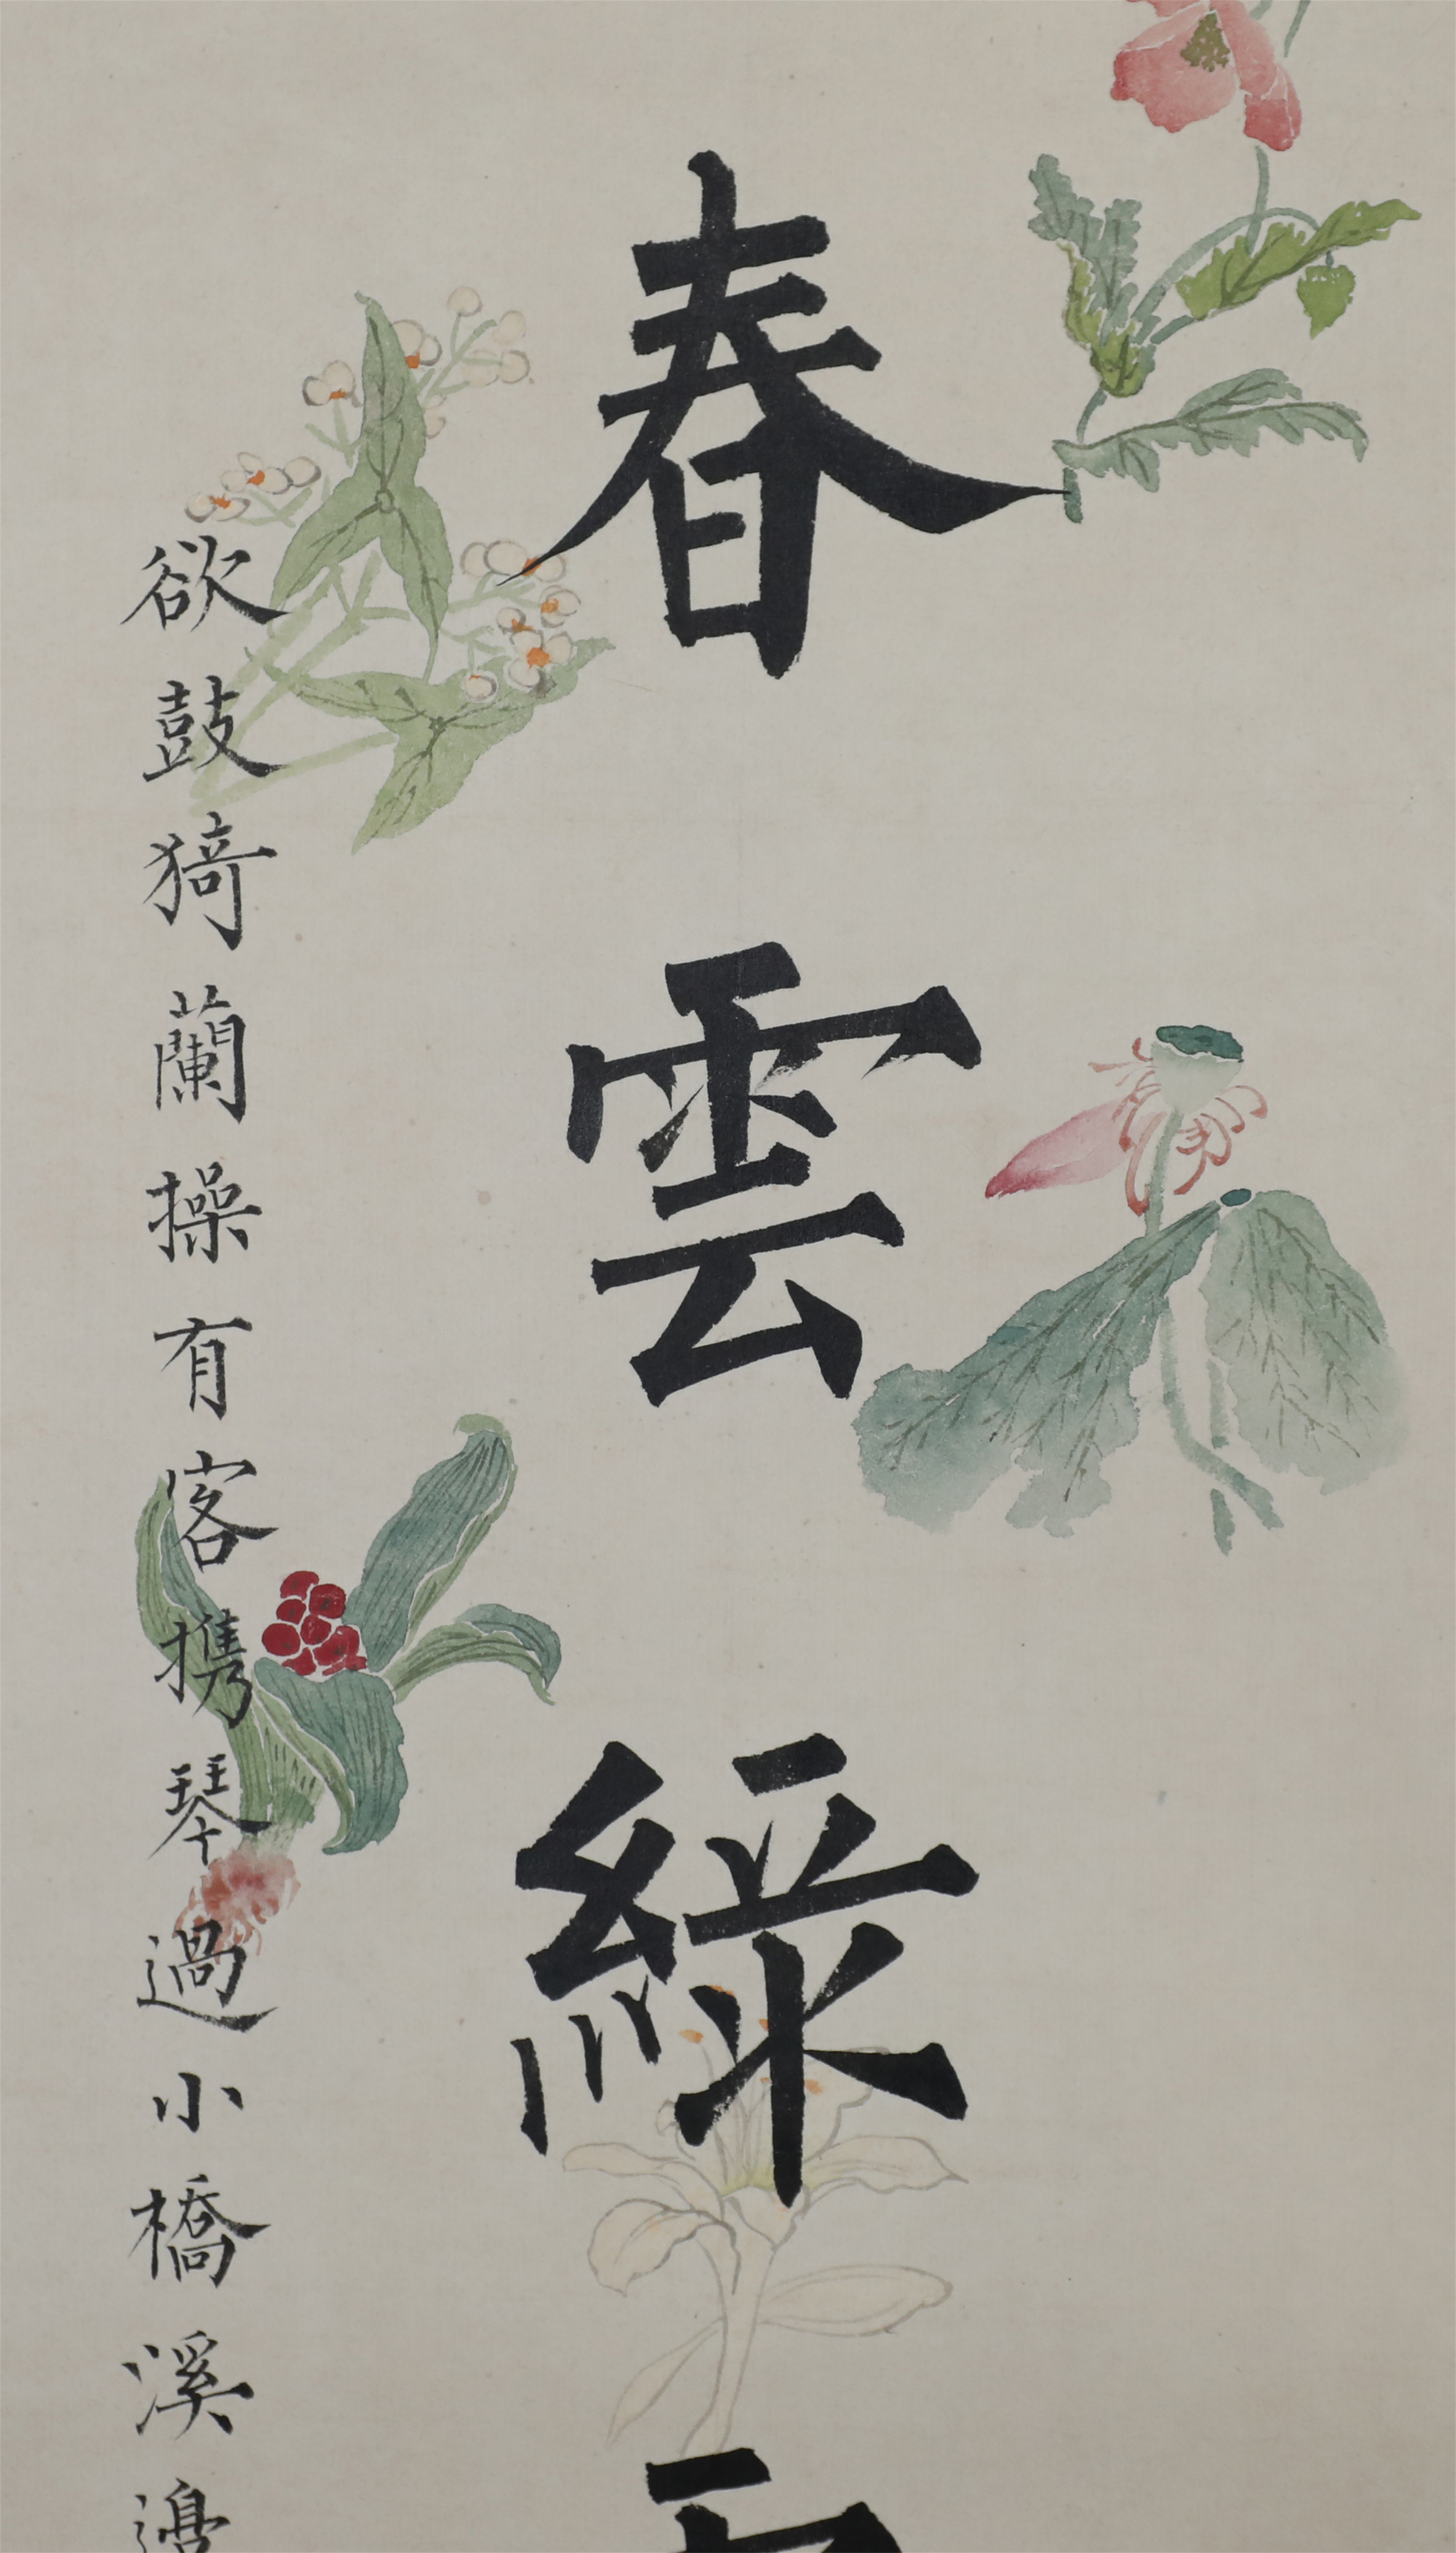 春雲綠
欲鼓猗蘭操有客携琴過小橋溪邊